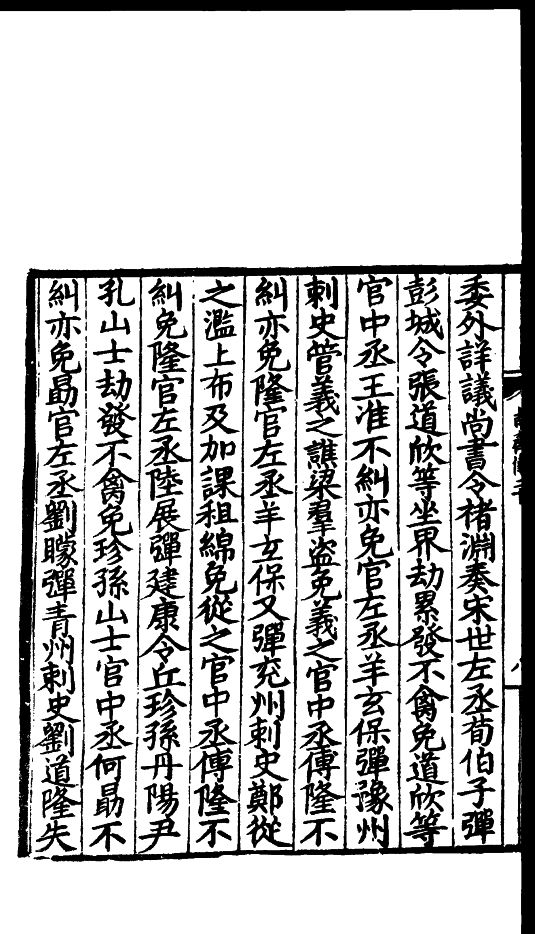 委外詳議尚書令禇淵奏宋世左丞荀伯子彈
彭城令張道欣等坐界劫累發不禽免道欣等
官中丞王准不糾亦免官左丞羊玄保彈豫州
刺史管義之譙梁羣盗免義之官中丞傅隆不
糾亦免隆官左丞羊玄保又彈兖州刺史鄭從
之濫上布及加課租綿免從之官中丞傅隆不
糾免隆官左丞陸展彈建康令丘珍孫丹陽尹
孔山士劫發不禽免珍孫山士官中丞何勗不
糾亦免勗官左丞劉矇彈青州刺史劉道隆失